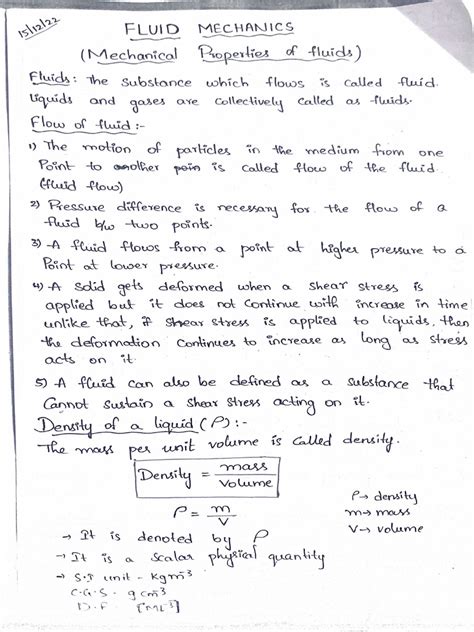 15/12/22
FLUID MECHANICS
(Mechanical Properties of fluids)
Fluids: The substance which flows is called fluid.
liquids and gases are collectively called as fluids.
Flow of fluid :-
1) The motion of particles in the medium from one
Point to another poin is called flow of the fluid.
(fluid flow)
2) Pressure difference is necessary for the flow of a
fluid b/w two points.
3) A fluid flows from a point at higher pressure to a
Point at lower pressure.
4) A Solid gets deformed when a shear stress is
applied but it does not continue with increase in time
unlike that, if shear stress is applied to liquids, then
the deformation continues to increase as long as stress
acts on it.
5) A fluid can also be defined as a substance that
Cannot sustain a shear stress acting on it.
Density of a liquid (ρ) :-
The mass per unit volume is called density.
Density = mass / Volume
ρ = m / V
ρ → density
m → mass
V → volume
→ It is denoted by ρ
→ It is a scalar physical quantity
→ S.I unit - Kgm⁻³
C.G.S - gcm⁻³
D.F [ML⁻³]